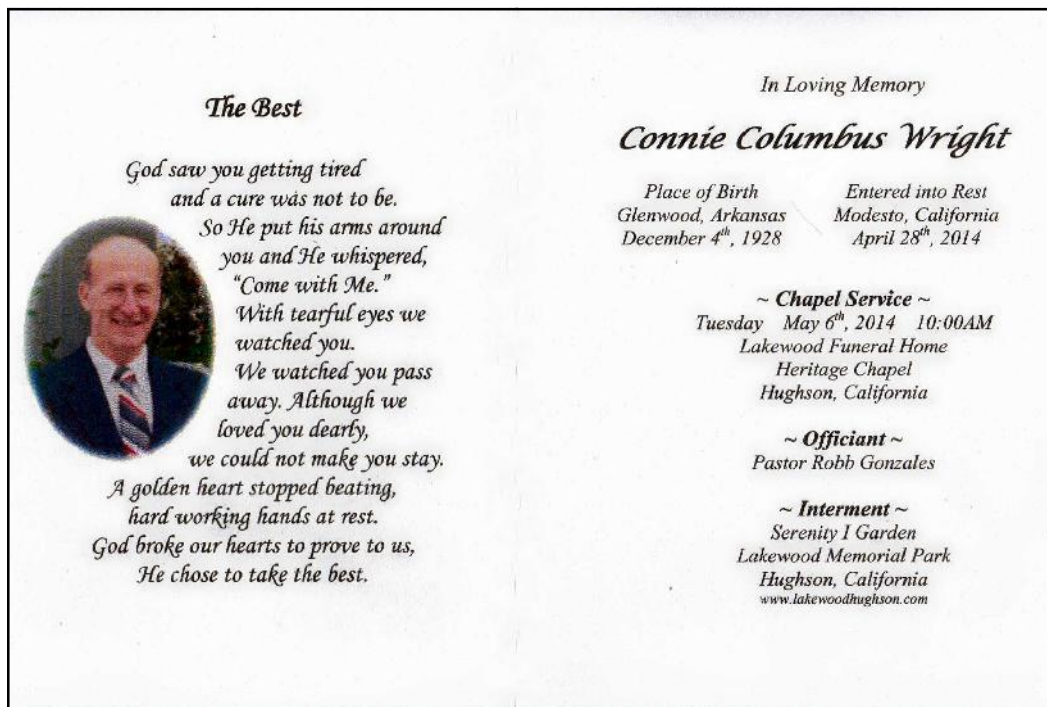 The Best
God saw you getting tired
and a cure was not to be.
So He put his arms around
you and He whispered,
"Come with Me."
With tearful eyes we
watched you.
We watched you pass
away. Although we
loved you dearly,
we could not make you stay.
A golden heart stopped beating,
hard working hands at rest.
God broke our hearts to prove to us,
He chose to take the best.
In Loving Memory
Connie Columbus Wright
Place of Birth
Glenwood, Arkansas
December 4th, 1928
Entered into Rest
Modesto, California
April 28th, 2014
~ Chapel Service ~
Tuesday May 6th, 2014 10:00AM
Lakewood Funeral Home
Heritage Chapel
Hughson, California
~ Officiant ~
Pastor Robb Gonzales
~ Interment ~
Serenity I Garden
Lakewood Memorial Park
Hughson, California
www.lakewoodhughson.com